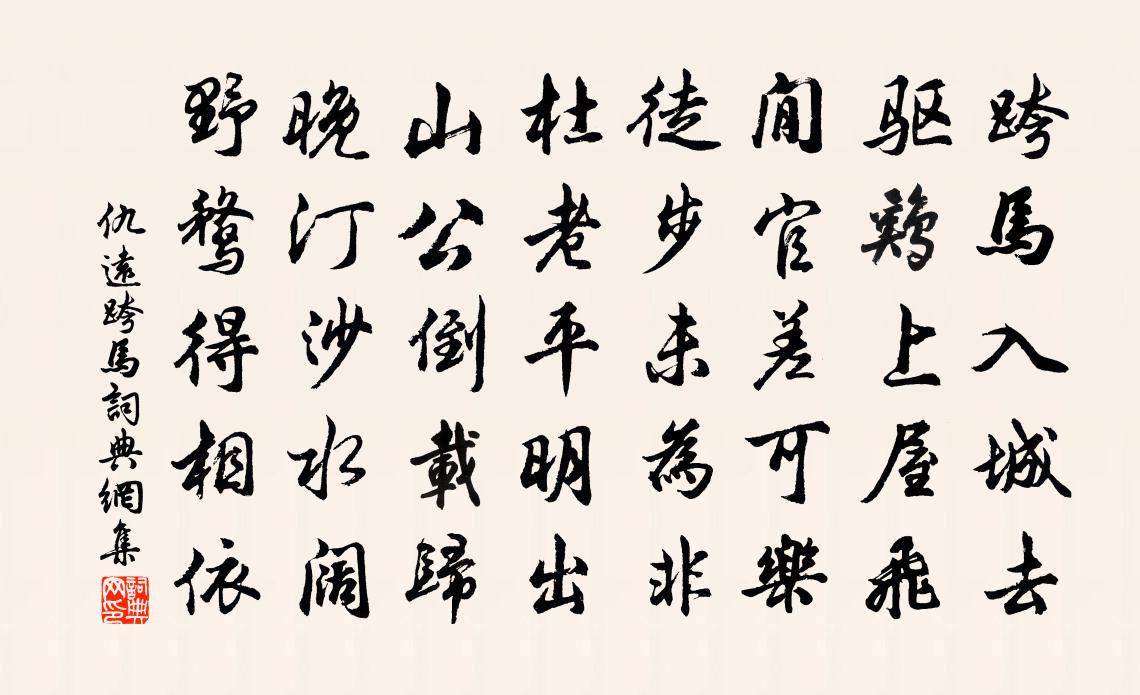 跨馬入城去
驱鷄上屋飛
閒官差可樂
徒步未為非
杜老平明出
山公倒載歸
晚汀沙水阔
野鶩得相依
仇遠跨馬詞典網集
詞典网印